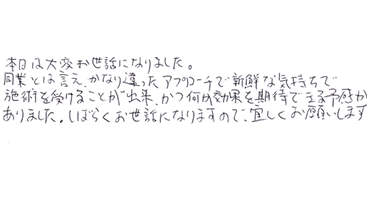 本日は大変お世話になりました。
同業とは言え、かなり違ったアプローチで新鮮な気持ちで
施術を受けることが出来、かつ何か効果を期待できる予感が
ありました。しばらくお世話になりますので、宜しくお願いします